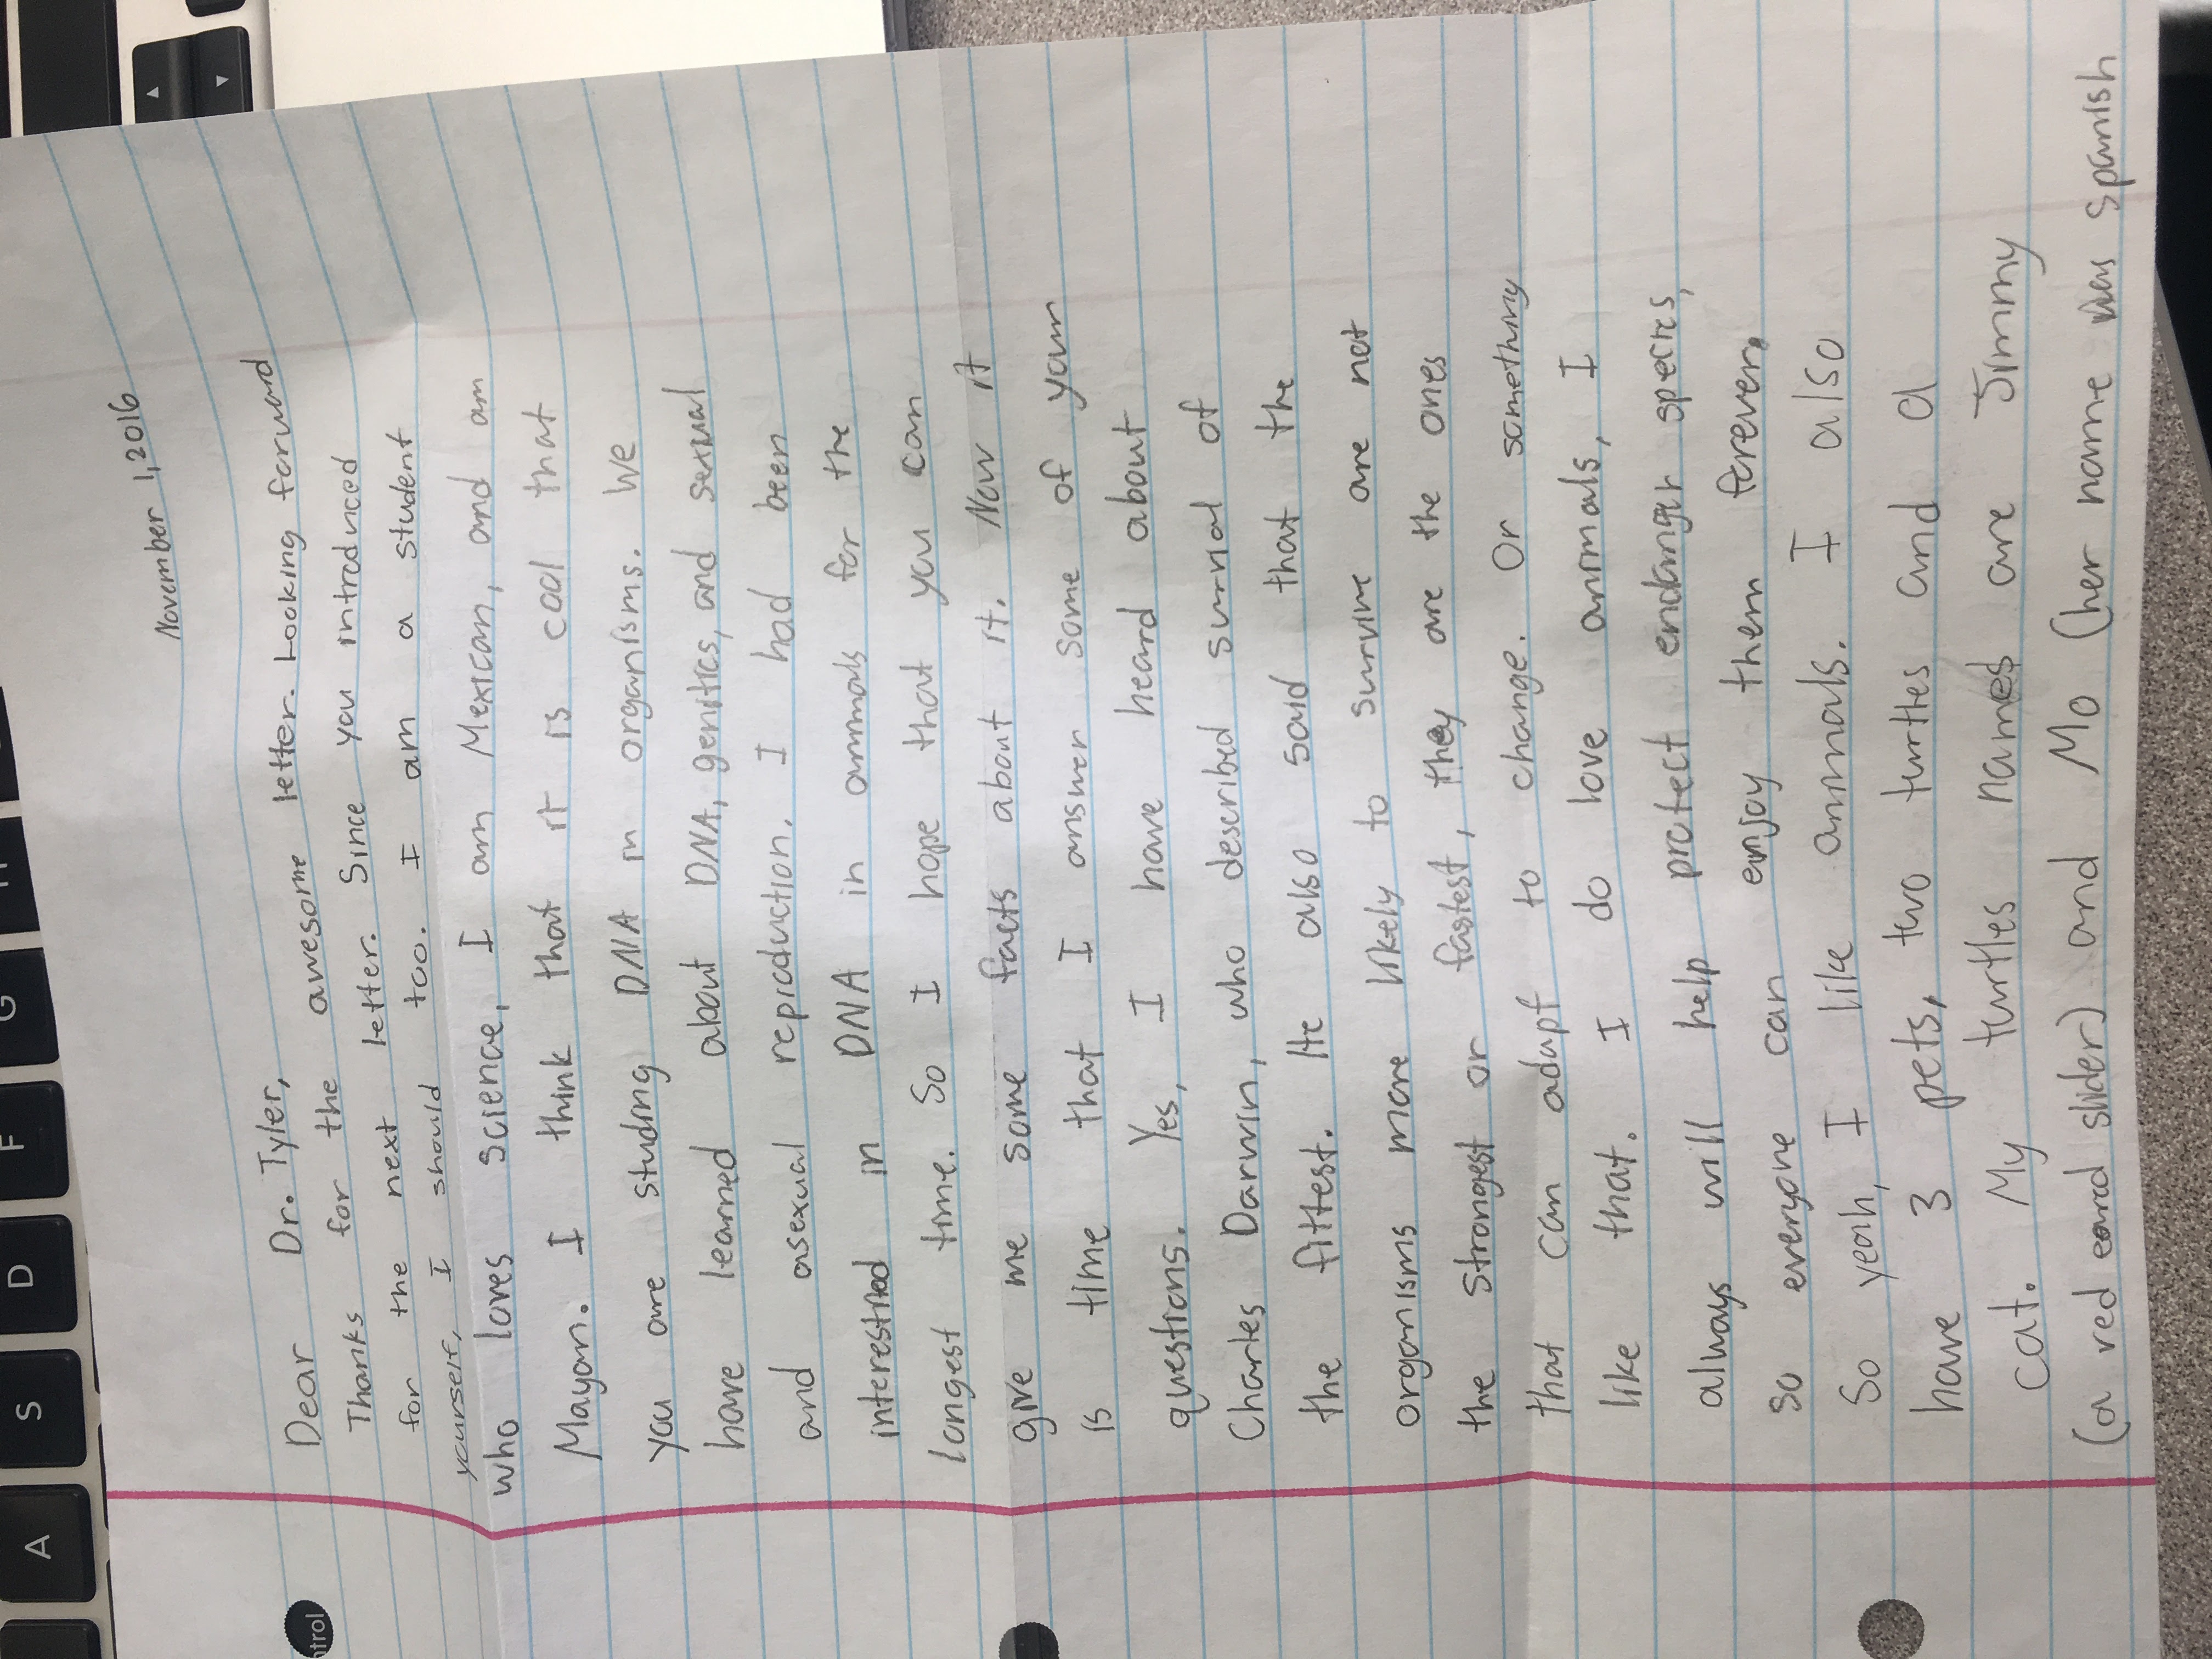 November 1, 2016
Dear Dr. Tyler,
Thanks for the awesome letter. Looking forward
for the next letter. Since you introduced
yourself, I should too. I am a student
who loves science, I am Mexican, and am
Mayan. I think that it is cool that
you are studing DNA in organisms. We
have learned about DNA, genitics, and sexual
and asexual reproduction. I had been
interested in DNA in animals for the
longest time. So I hope that you can
give me some facts about it. Now it
is time that I answer some of your
questions. Yes, I have heard about
Charles Darwin, who described survial of
the fittest. He also said that the
organisms more likely to survive are not
the strongest or fastest, they are the ones
that can adapt to change. Or something
like that. I do love animals, I
always will help protect endanger species,
so everyone can enjoy them forever.
So yeah, I like animals. I also
have 3 pets, two turtles and a
cat. My turtles names are Jimmy
(a red eared slider) and Mo (her name was spanish
A
S
D
F
G
ntrol